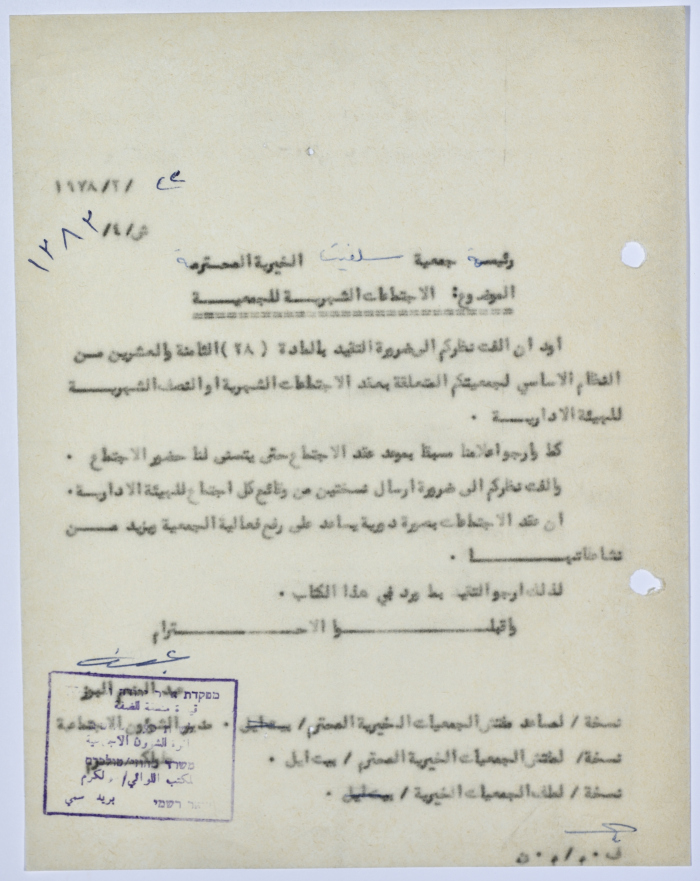 ١٩٧٨/٢/
ش/٤/ ١٣٨٢
رئيسة جمعية سلفيت الخيرية المحترمة
الموضوع: الاجتماعات الشهريــة للجمعيــة
أود ان الفت نظركم الى ضرورة التقيد بالمادة (٢٨) الثامنة والعشرين مــن
النظام الاساسي لجمعيتكم المتعلقة بعقد الاجتماعات الشهرية او النصف الشهريــة
للهيئة الاداريــة ٠
كما وارجو اعلامنا مسبقا بموعد عقد الاجتماع حتى يتسنى لنا حضور الاجتماع ٠
والفت نظركم الى ضرورة ارسال نسختين من وقائع كل اجتماع للهيئة الاداريــة ٠
ان عقد الاجتماعات بصورة دورية يساعد على رفع فعالية الجمعية ويزيد مــن
نشاطاتهــا ٠
لذلك ارجو التقيد بما يرد في هذا الكتاب ٠
واقبلــوا الاحــترام
مدير الشؤون الاجتماعية
نسخة / لمساعد مفتش الجمعيات الخيرية المحترم / بيت ايل ٠
نسخة / لمفتش الجمعيات الخيرية المحترم / بيت ايل ٠
نسخة / لملف الجمعيات الخيرية / بيت ايل ٠
בريد رسمي